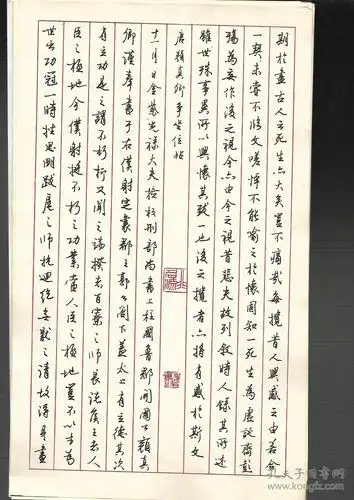 期於盡古人云死生亦大矣豈不痛哉每攬昔人興感之由若合
一契未嘗不臨文嗟悼不能喻之於懷固知一死生為虛誕齊彭
殤為妄作後之視今亦由今之視昔悲夫故列敘時人錄其所述
雖世殊事異所以興懷其致一也後之攬者亦將有感於斯文
唐顏真卿爭坐位帖
十一月日金紫光祿大夫檢校刑部尚書上柱國魯郡開國公顏真
卿謹奉書于右僕射定襄郡王郭公閣下蓋太上有立德其次
有立功是之謂不朽抑又聞之端揆者百寮之師長諸侯王者人
臣之極地今僕射挺不朽之功業當人臣之極地豈不以才為
世出功冠一時挫思明跋扈之師抗迴紇無厭之請故得身畫
孔夫子旧书网